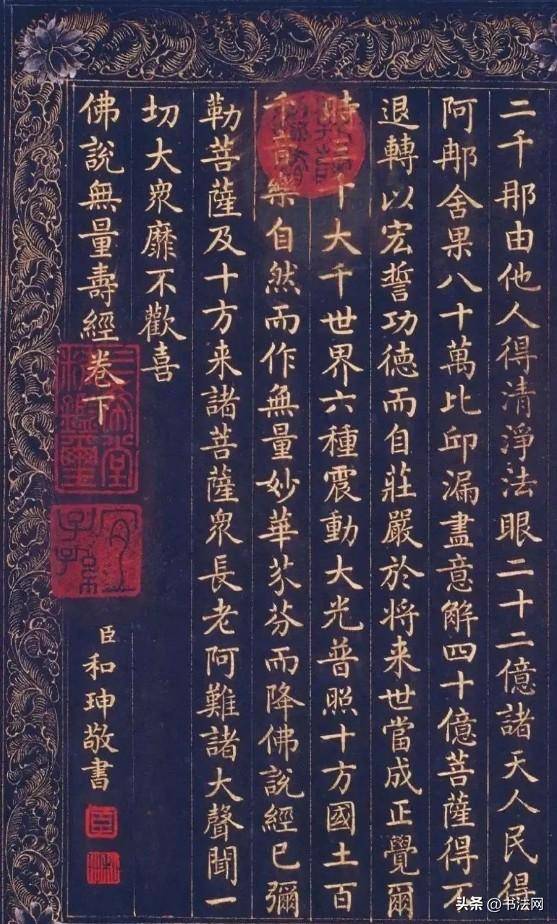 二千那由他人得清淨法眼二十二億諸天人民得
阿那舍果八十萬比邱漏盡意解四十億菩薩得不
退轉以宏誓功德而自莊嚴於将来世當成正覺爾
時三千大千世界六種震動大光普照十方國土百
千音樂自然而作無量妙華芬芬而降佛說經已彌
勒菩薩及十方来諸菩薩衆長老阿難諸大聲聞一
切大衆靡不歡喜
佛說無量壽經卷下
三希堂精鑑璽
宜子孫
臣和珅敬書
头条 @书法网